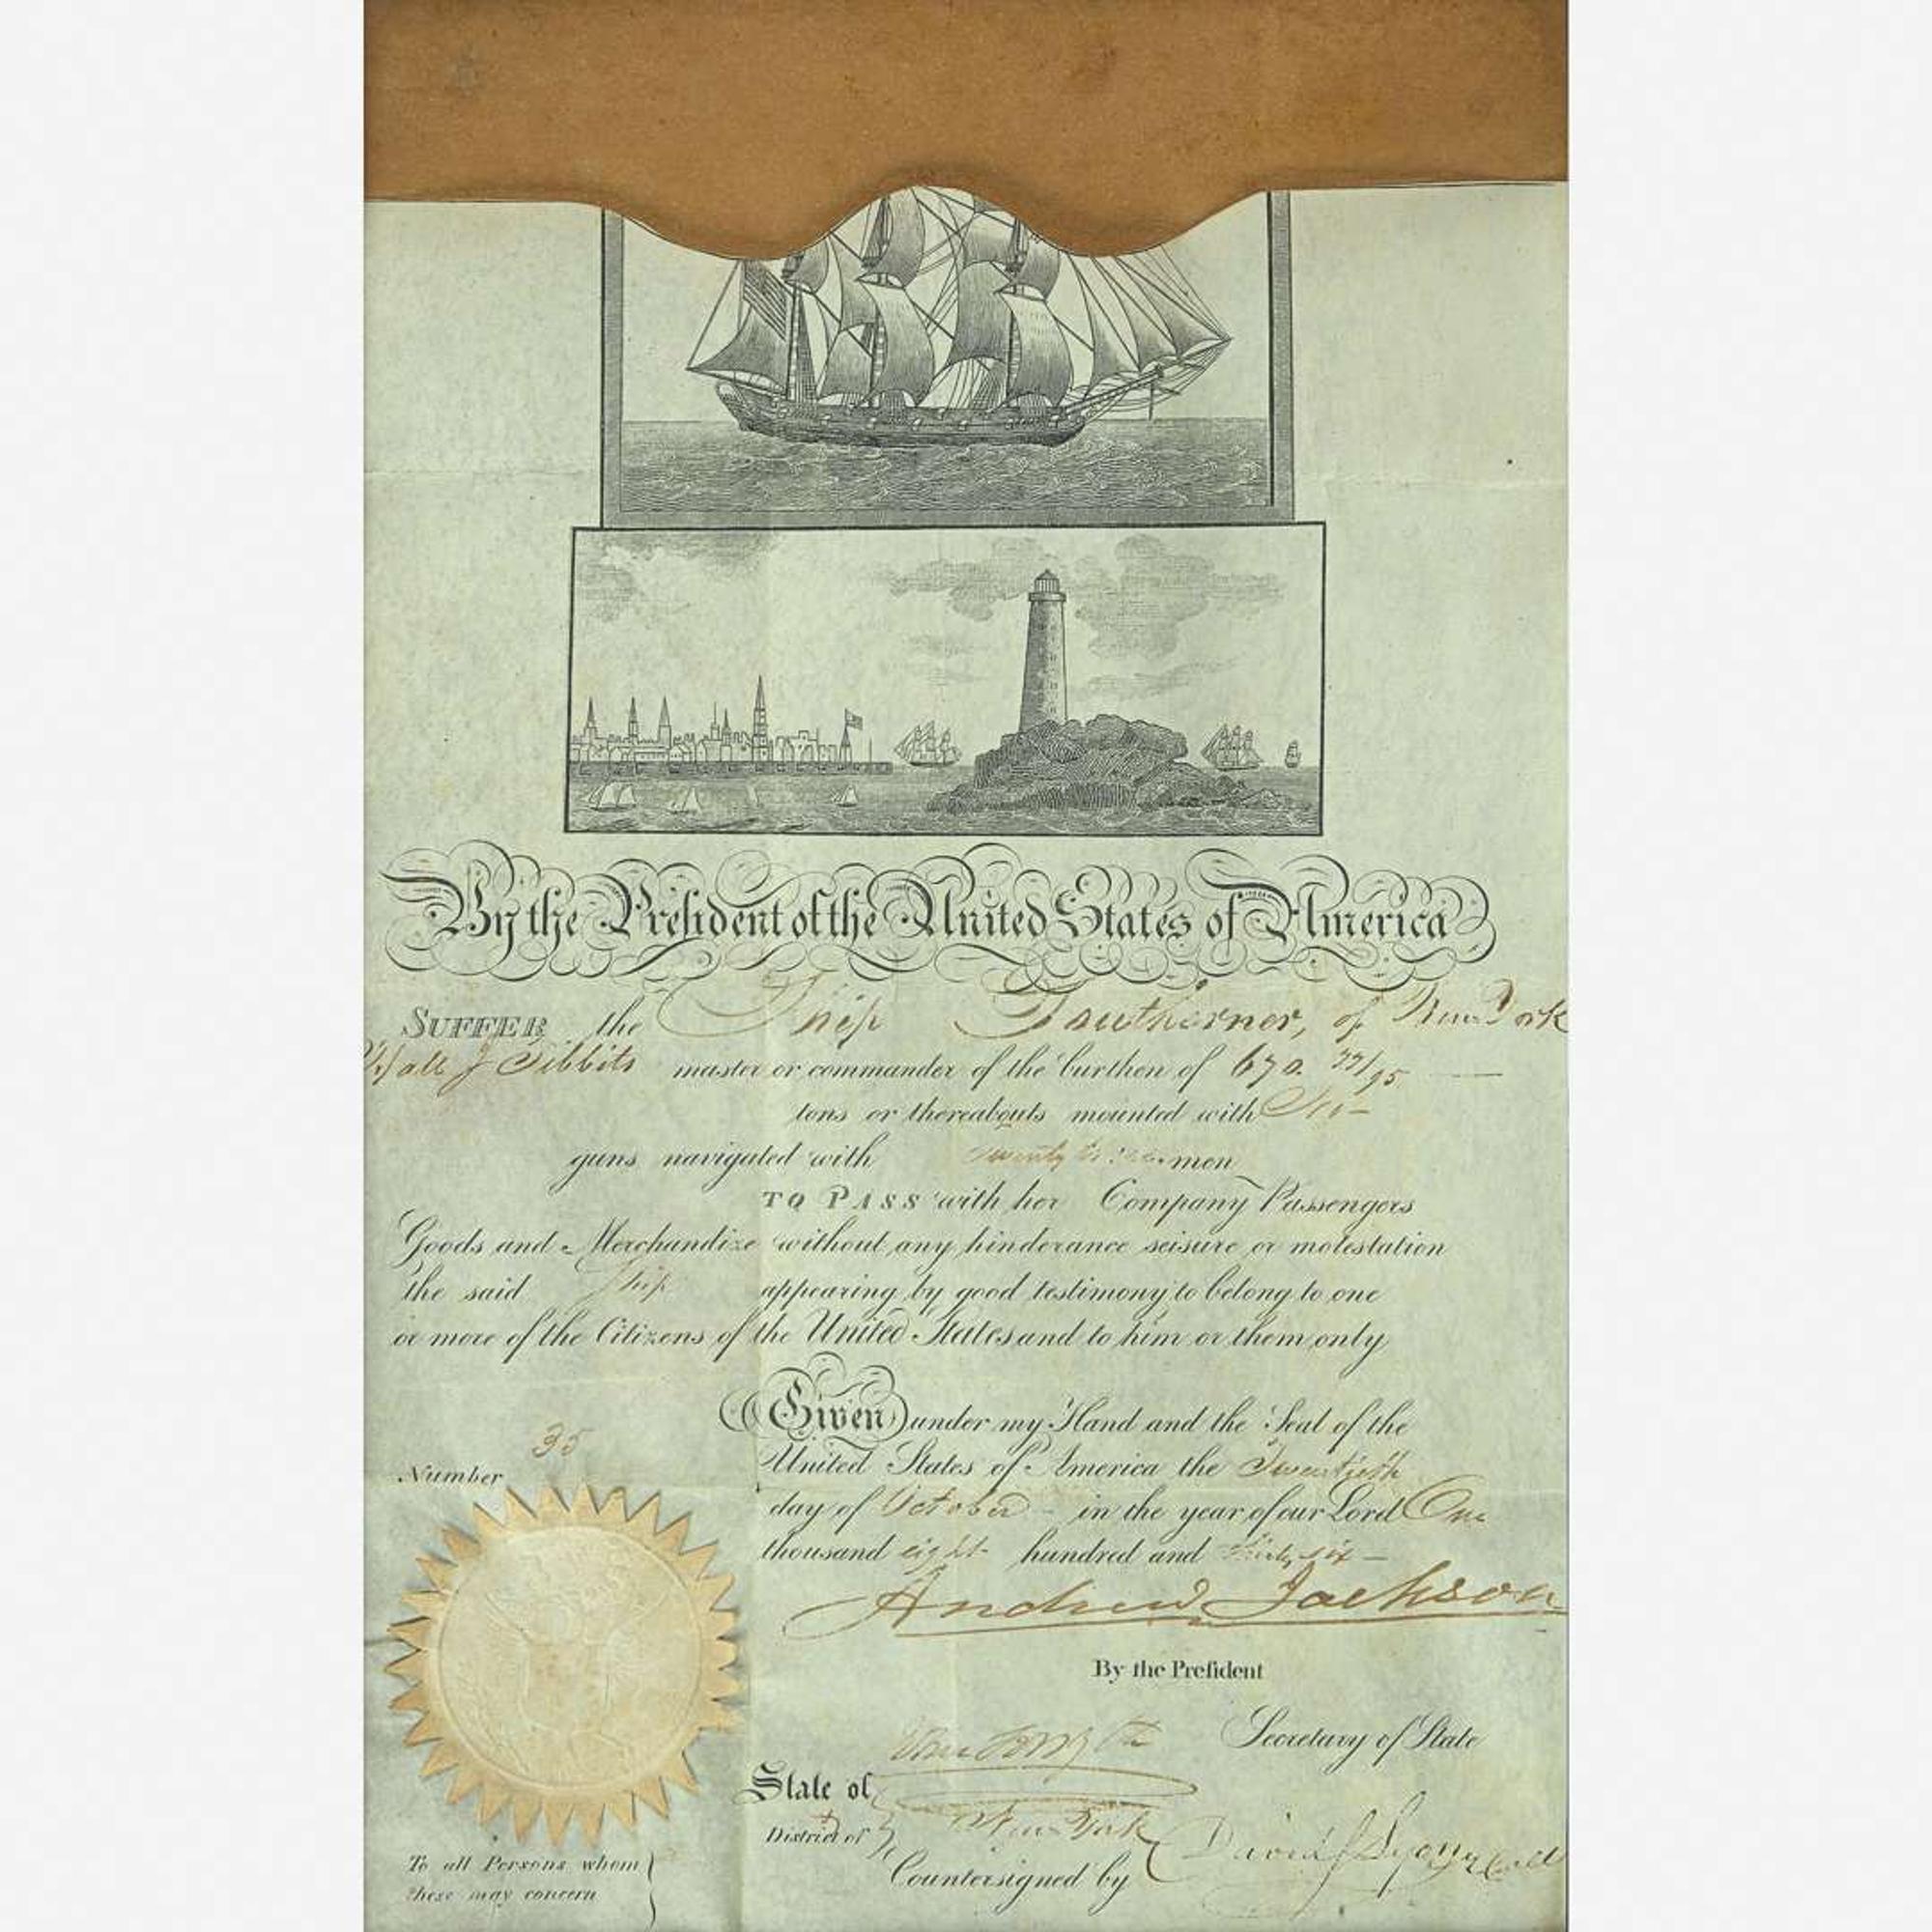 By the President of the United States of America
SUFFER the Ship Southerner, of New York
J Tibbits master or commander of the burthen of 670. 33/95
tons or thereabouts mounted with
guns navigated with Twenty men
TO PASS with her Company Passengers
Goods and Merchandize without any hinderance seisure or molestation
the said Ship appearing by good testimony to belong to one
or more of the Citizens of the United States and to him or them only
Given under my Hand and the Seal of the
United States of America the Twentieth
day of October in the year of our Lord One
thousand eight hundred and thirty six
Number 35
Andrew Jackson
By the President
John Forsyth Secretary of State
State of
District of New York
Countersigned by David S Lyon
To all Persons whom
these may concern